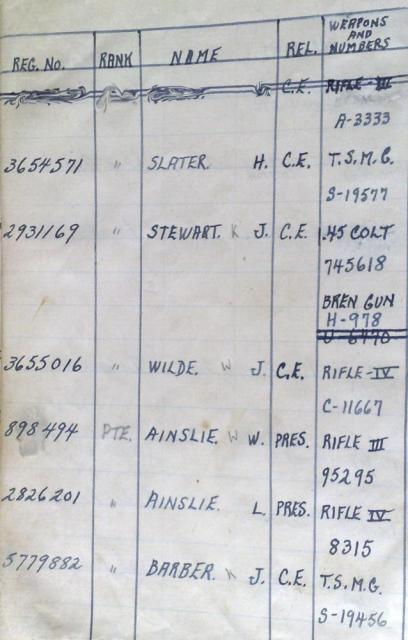 REG. No. RANK NAME REL. WEAPONS AND NUMBERS
C.E. RIFLE III
A-3333
3654571 " SLATER. H. C.E. T.S.M.G.
S-19577
2931169 " STEWART. K J. C.E. .45 COLT
745618
BREN GUN
H-978
U-6470
3655016 " WILDE. W J. C.E. RIFLE-IV
C-11667
898494 PTE. AINSLIE. W W. PRES. RIFLE III
95295
2826201 " AINSLIE. L. PRES. RIFLE IV
8315
5779882 " BARBER. K J. C.E. T.S.M.G.
S-19456